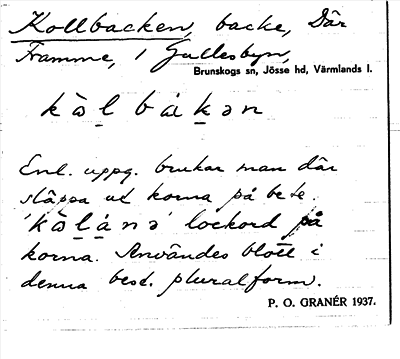 Kollbacken, backe, Där
Framme, i Gullesbyn,
Brunskogs sn, Jösse hd, Värmlands l.
kòl̠bák̠ən
Enl. uppg. brukar man där
släppa ut korna på bete.
'kòl̠ánə' lockord på
korna. Användes blott i
denna best. pluralform.
P. O. GRANÉR 1937.